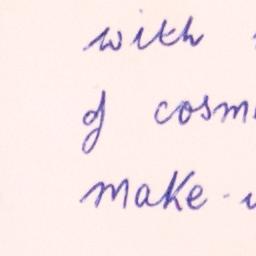 with
of cosm
make-u